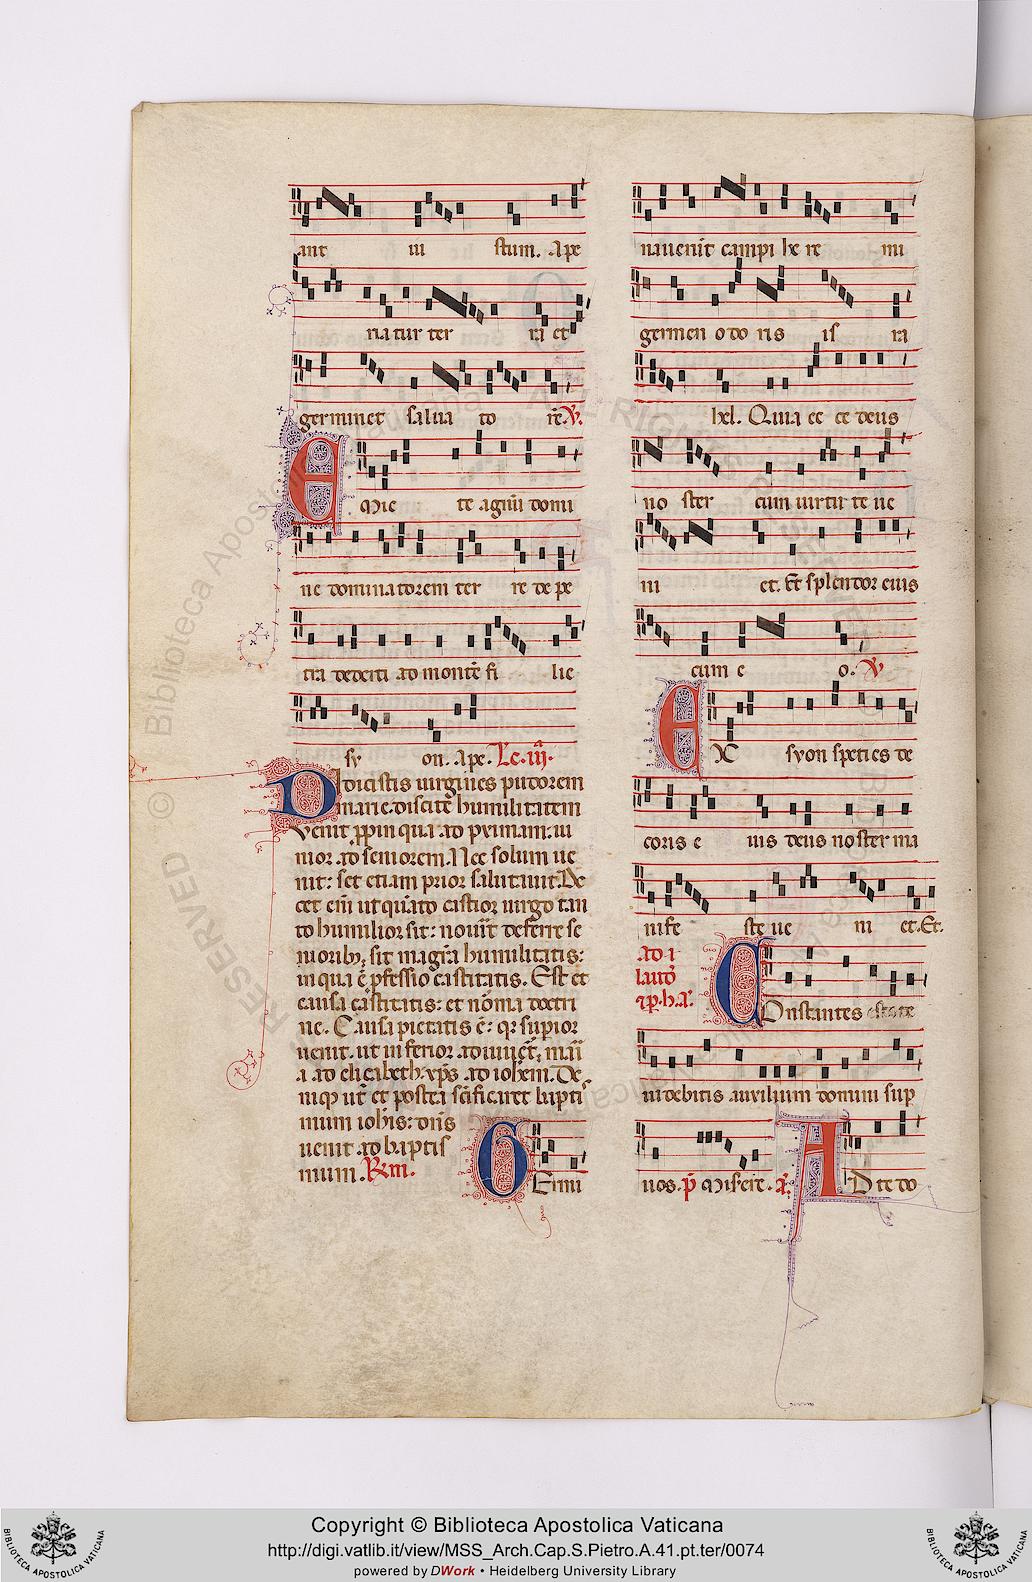 ant iu stum. Ape
riatur ter ra et
germinet salua to rē. V.
Emic te agnū domi
ne dominatorem ter re de pe
tra deserti ad montē fi lie
sy on. Ape. Lc. iij.
Didicistis uirgines pudorem
marie. discite humilitatem
Venit ppinqua ad prximam: iu
nior ad seniorem. Nec solum ue
nit: set etiam prior salutauit. De
cet eni ut quāto castior uirgo tan
to humilior sit: nouīt deferre se
nioribꝫ, sit magrā humilitatis:
in qua ē pfessio castitatis. Est et
causa castitatis: et nōma doctri
ne. Causa pietatis ē: qr supior
uenit. ut inferior adiuuet. mari
a ad elisabeth: xp̄s ad iohem. De
niqꝫ ut et postea sc̄ificaret bapti
mum ioh̄is: dn̄s
uenit ad baptis
mum. Rm.
Germi
nauerūt campi he re mi
germen odo ris is ra
hel. Quia ec ce deus
no ster cum uirtu te ue
ni et. Et splendor eius
cum e o. V
EX syon species de
coris e ius deus noster ma
nife ste ue ni et. Et.
ad i
laud
Constantes estote
uidebitis auxilium domini sup
uos. p̄ Misere. a. AD te do
Copyright © Biblioteca Apostolica Vaticana
http://digi.vatlib.it/view/MSS_Arch.Cap.S.Pietro.A.41.pt.ter/0074
powered by DWork • Heidelberg University Library